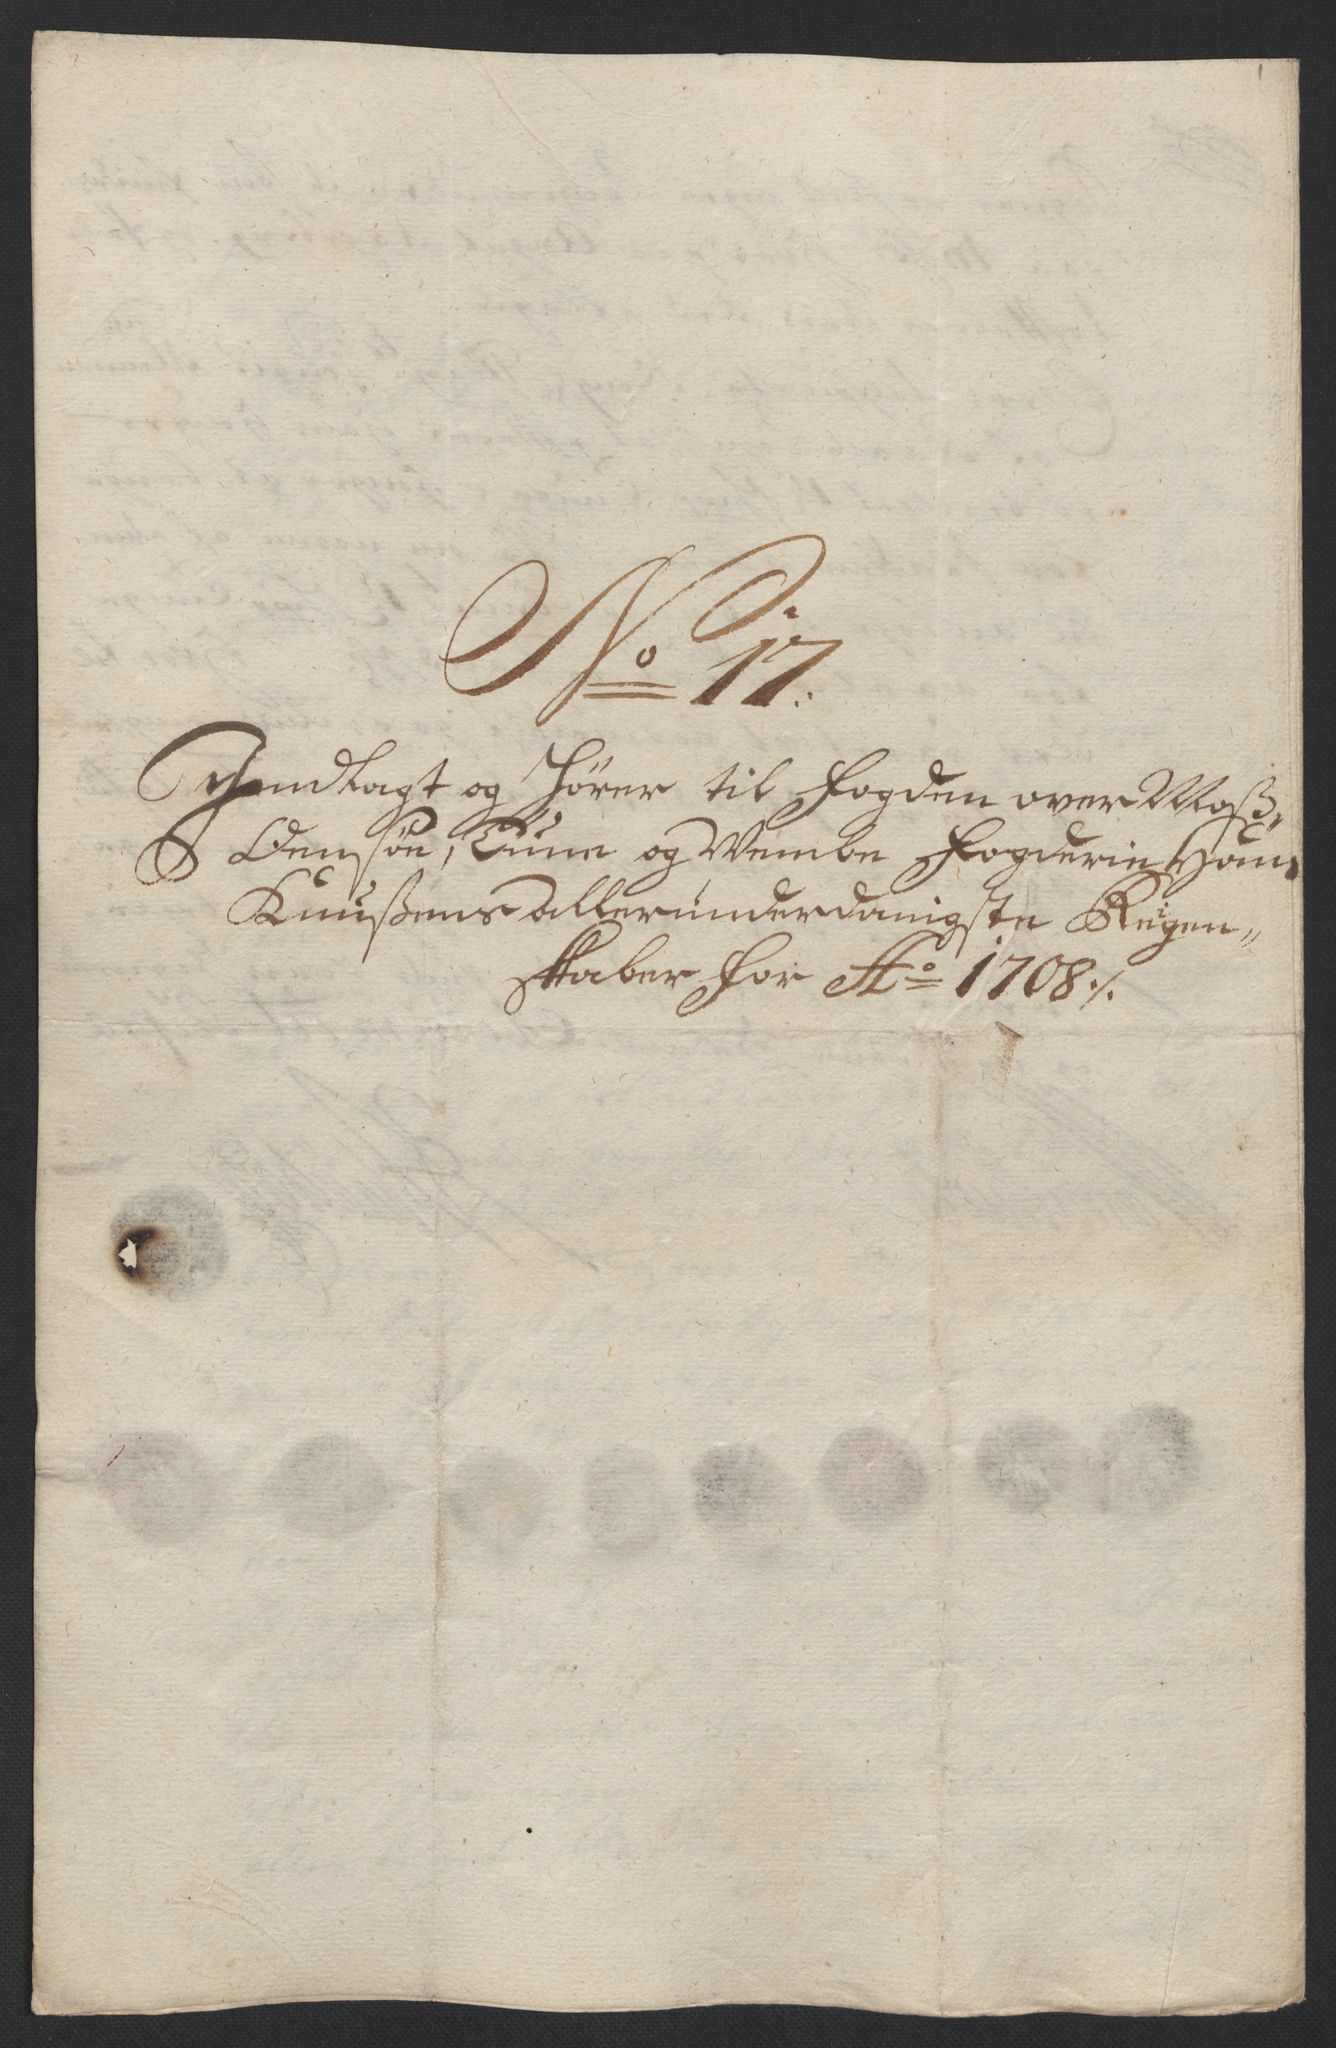 No 17.
Indlagt og hörer til fogden over Moß,
Oensöe, Tune og Wembe fogderie Hans
Knußens allerunderdanigste Regen„
skaber for Ao 1708 ./.